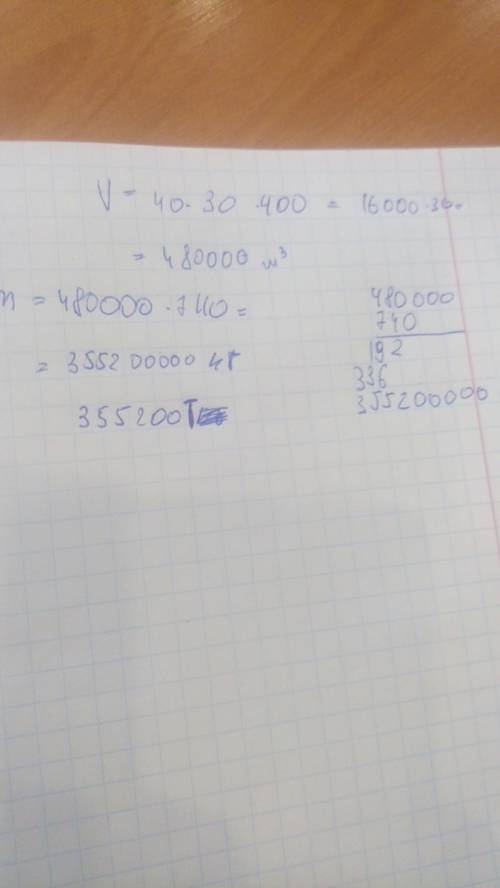 V = 40 · 30 · 400 = 16000 · 30 =
= 480000 м³
m = 480000 · 740 =
= 355200000 кг
355200 т
480000
740
192
336
355200000